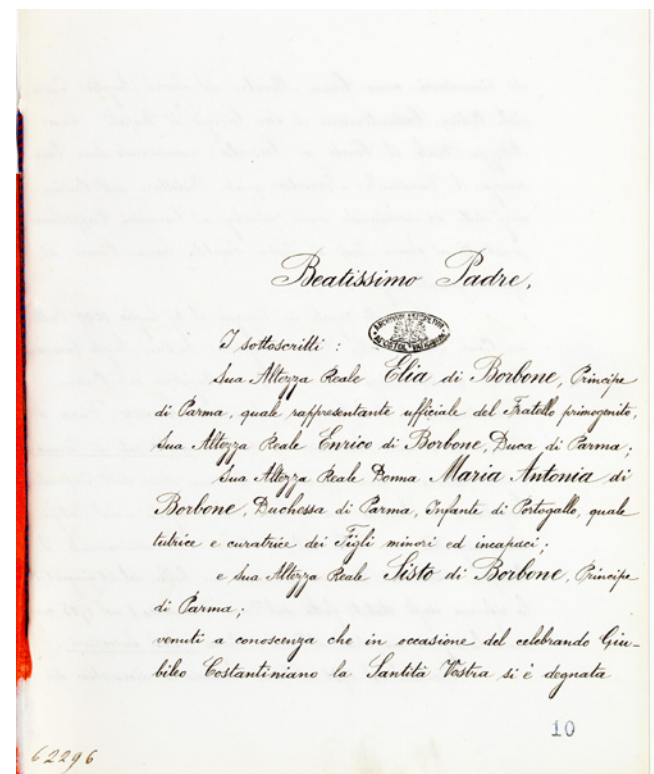 Beatissimo Padre,
I sottoscritti :
Sua Altezza Reale Elia di Borbone, Principe
di Parma, quale rappresentante ufficiale del Fratello primogenito,
Sua Altezza Reale Enrico di Borbone, Duca di Parma;
Sua Altezza Reale Donna Maria Antonia di
Borbone, Duchessa di Parma, Infante di Portogallo, quale
tutrice e curatrice dei Figli minori ed incapaci;
e Sua Altezza Reale Sisto di Borbone, Principe
di Parma;
venuti a conoscenza che in occasione del celebrando Giu-
bileo Costantiniano la Santità Vostra si è degnata
10
62296